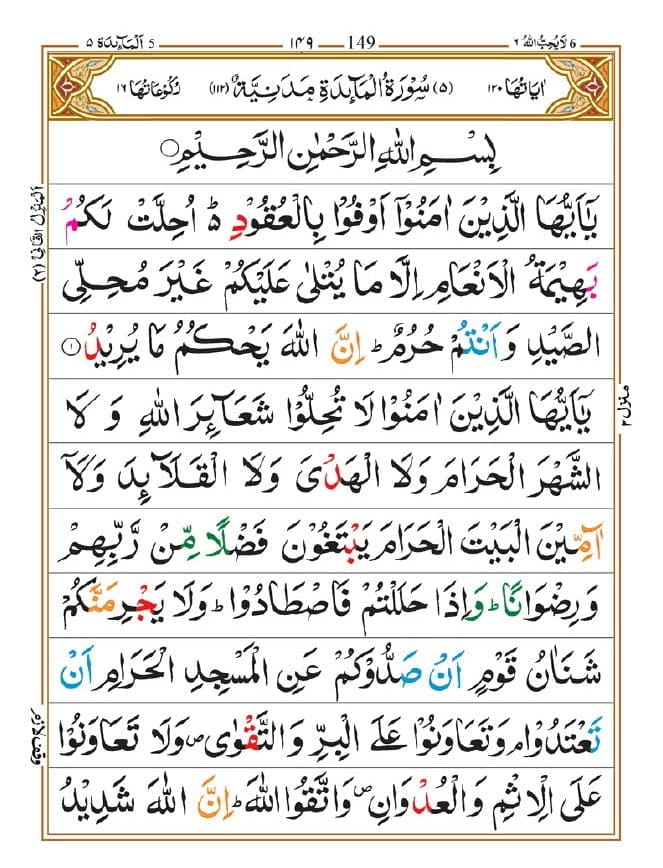 لَا يُحِبُّ اللّٰهُ ٦ 6
149 ١٤٩
اَلْمَآئِدَة ٥ 5
اٰيَاتُهَا ١٢٠
(٥) سُوْرَةُ الْمَآئِدَةِ مَدَنِيَّةٌ (١١٢)
رُكُوْعَاتُهَا ١٦
بِسْمِ اللّٰهِ الرَّحْمٰنِ الرَّحِيْمِ ○
يٰۤاَيُّهَا الَّذِيْنَ اٰمَنُوْۤا اَوْفُوْا بِالْعُقُوْدِ ؕ اُحِلَّتْ لَكُمْ
بَهِيْمَةُ الْاَنْعَامِ اِلَّا مَا يُتْلٰى عَلَيْكُمْ غَيْرَ مُحِلِّي
الصَّيْدِ وَاَنْتُمْ حُرُمٌ ؕ اِنَّ اللّٰهَ يَحْكُمُ مَا يُرِيْدُ ۝١
يٰۤاَيُّهَا الَّذِيْنَ اٰمَنُوْا لَا تُحِلُّوْا شَعَآئِرَ اللّٰهِ وَلَا
الشَّهْرَ الْحَرَامَ وَلَا الْهَدْيَ وَلَا الْقَلَآئِدَ وَلَاۤ
آٰمِّيْنَ الْبَيْتَ الْحَرَامَ يَبْتَغُوْنَ فَضْلًا مِّنْ رَّبِّهِمْ
وَرِضْوَانًا ؕ وَاِذَا حَلَلْتُمْ فَاصْطَادُوْا ؕ وَلَا يَجْرِمَنَّكُمْ
شَنَاٰنُ قَوْمٍ اَنْ صَدُّوْكُمْ عَنِ الْمَسْجِدِ الْحَرَامِ اَنْ
تَعْتَدُوْا ۘ وَتَعَاوَنُوْا عَلَى الْبِرِّ وَالتَّقْوٰى ۪ وَلَا تَعَاوَنُوْا
عَلَى الْاِثْمِ وَالْعُدْوَانِ ۪ وَاتَّقُوا اللّٰهَ ؕ اِنَّ اللّٰهَ شَدِيْدُ
اَلْمَنْزِلُ الثَّانِيْ (٢)
منزل ٢
وقف لازم